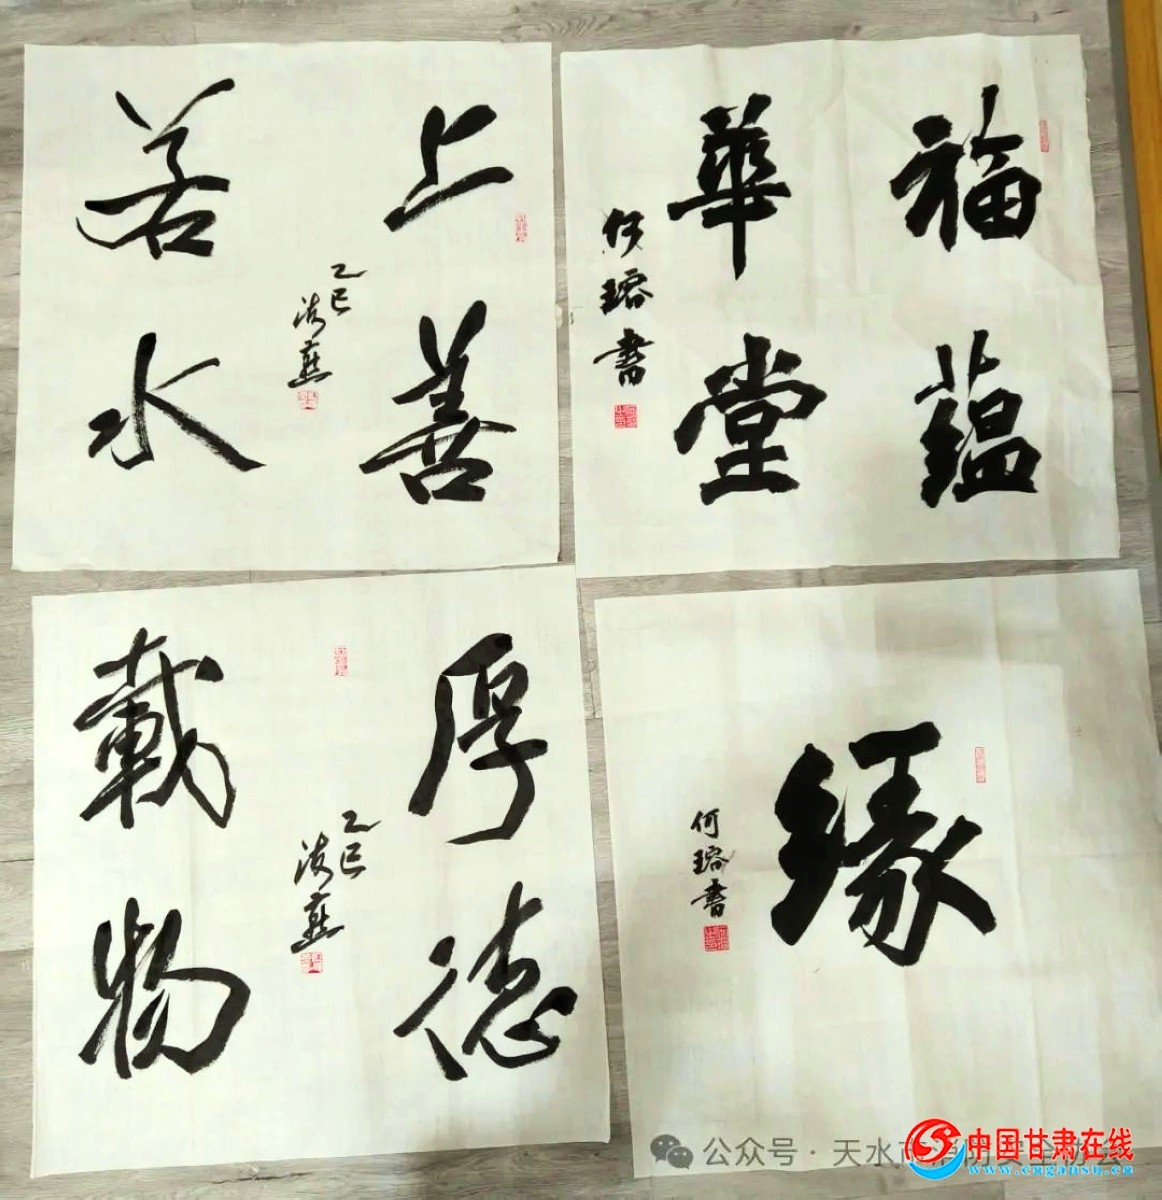 上善
若水
乙巳
海燕
福蕴
華堂
何瑢書
厚德
載物
乙巳
海燕
缘
何瑢書
公众号·天水市
中国甘肃在线
www.cngansu.cn